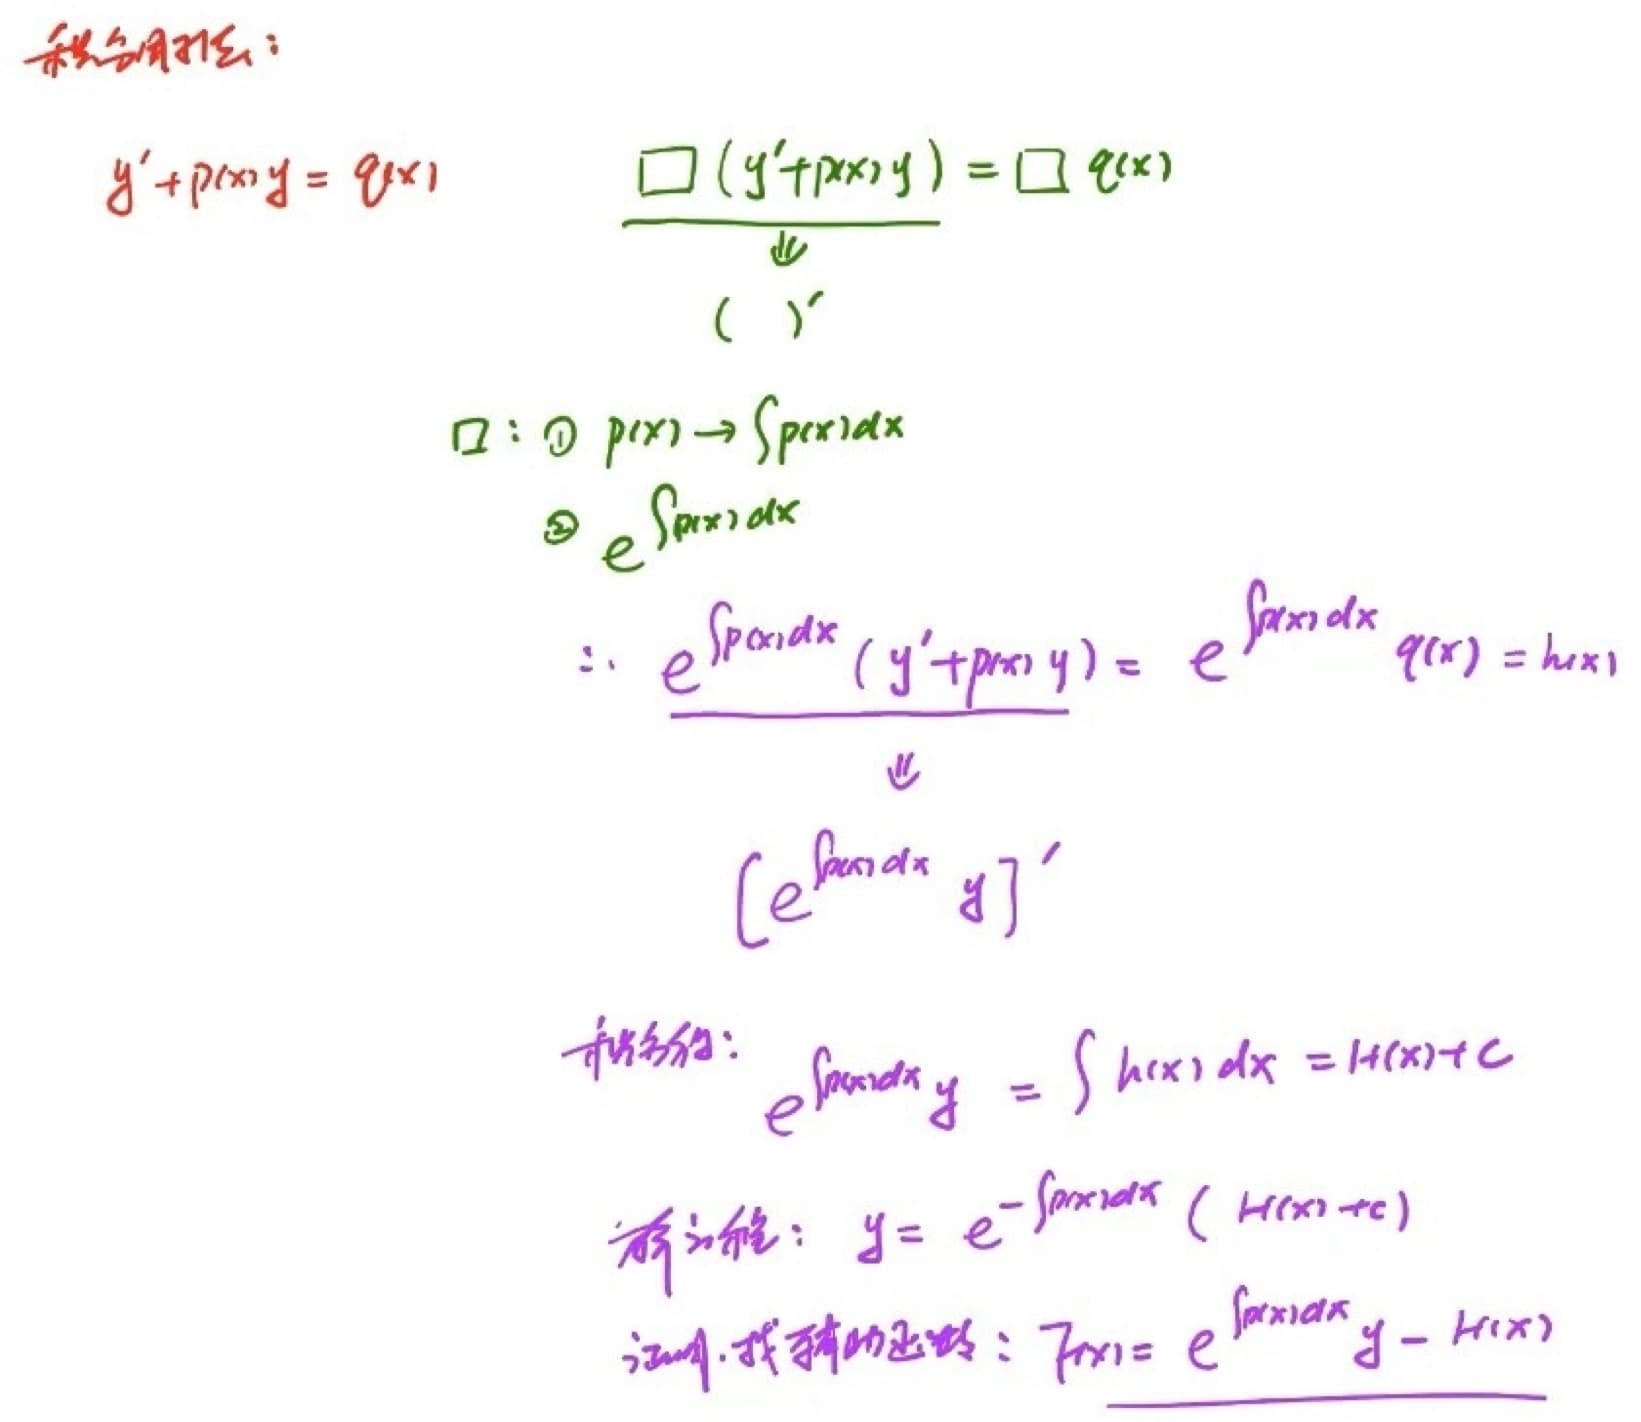 积分因子法：
y′+p(x)y = q(x)
□(y′+p(x)y) = □ q(x)
⇓
(   )′
□：① p(x) → ∫p(x)dx
② e^{∫p(x)dx}
∴ e^{∫p(x)dx}(y′+p(x)y) = e^{∫p(x)dx} q(x) = h(x)
⇓
[e^{∫p(x)dx} y]′
积分：e^{∫p(x)dx} y = ∫h(x)dx = H(x)+C
解方程：y = e^{-∫p(x)dx}(H(x)+C)
证明.找辅助函数：F(x) = e^{∫p(x)dx} y - H(x)